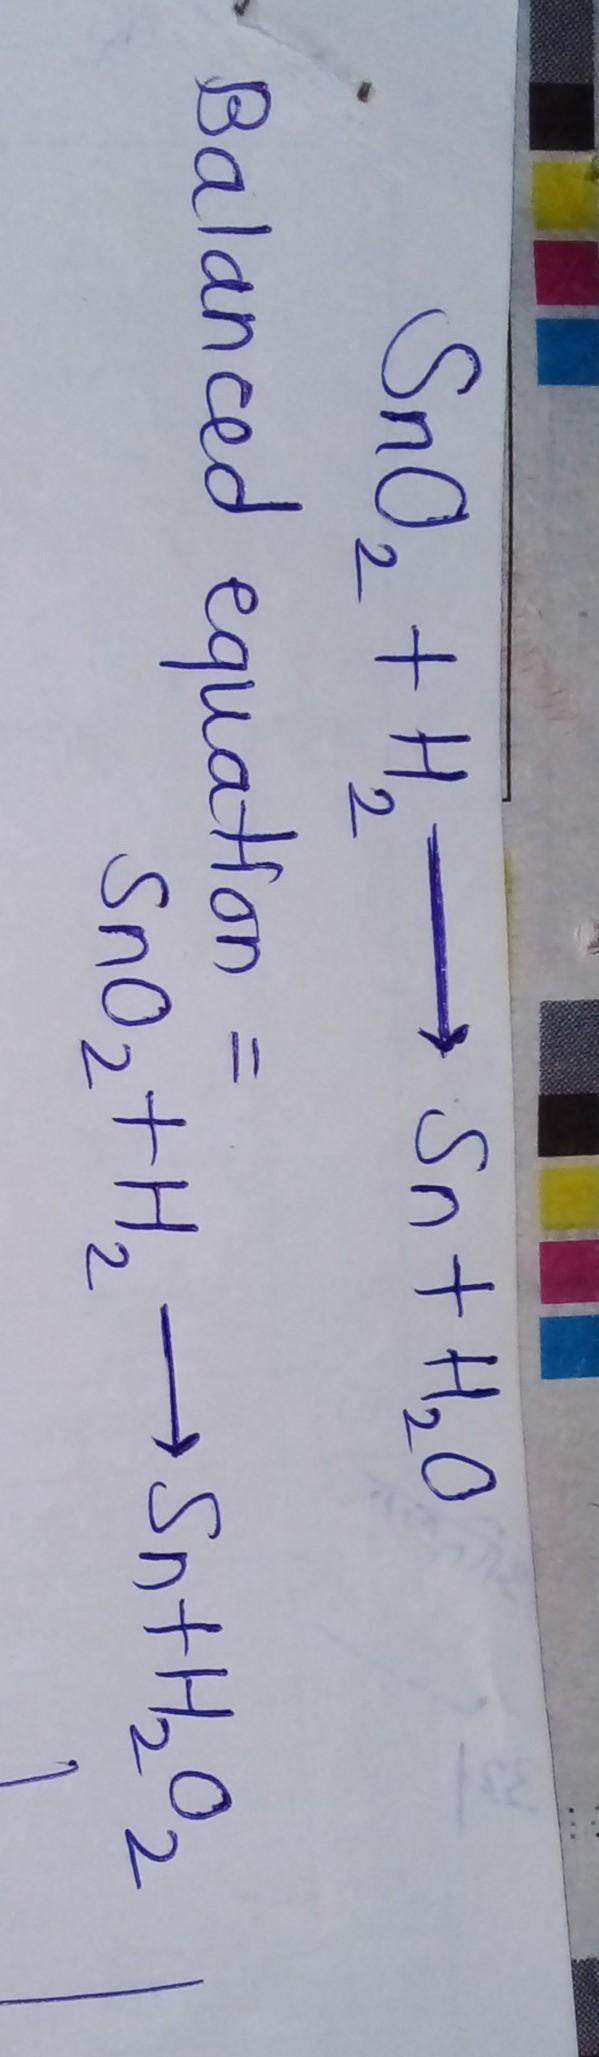 SnO₂ + H₂ → Sn + H₂O
Balanced equation =
SnO₂ + H₂ → Sn + H₂O₂